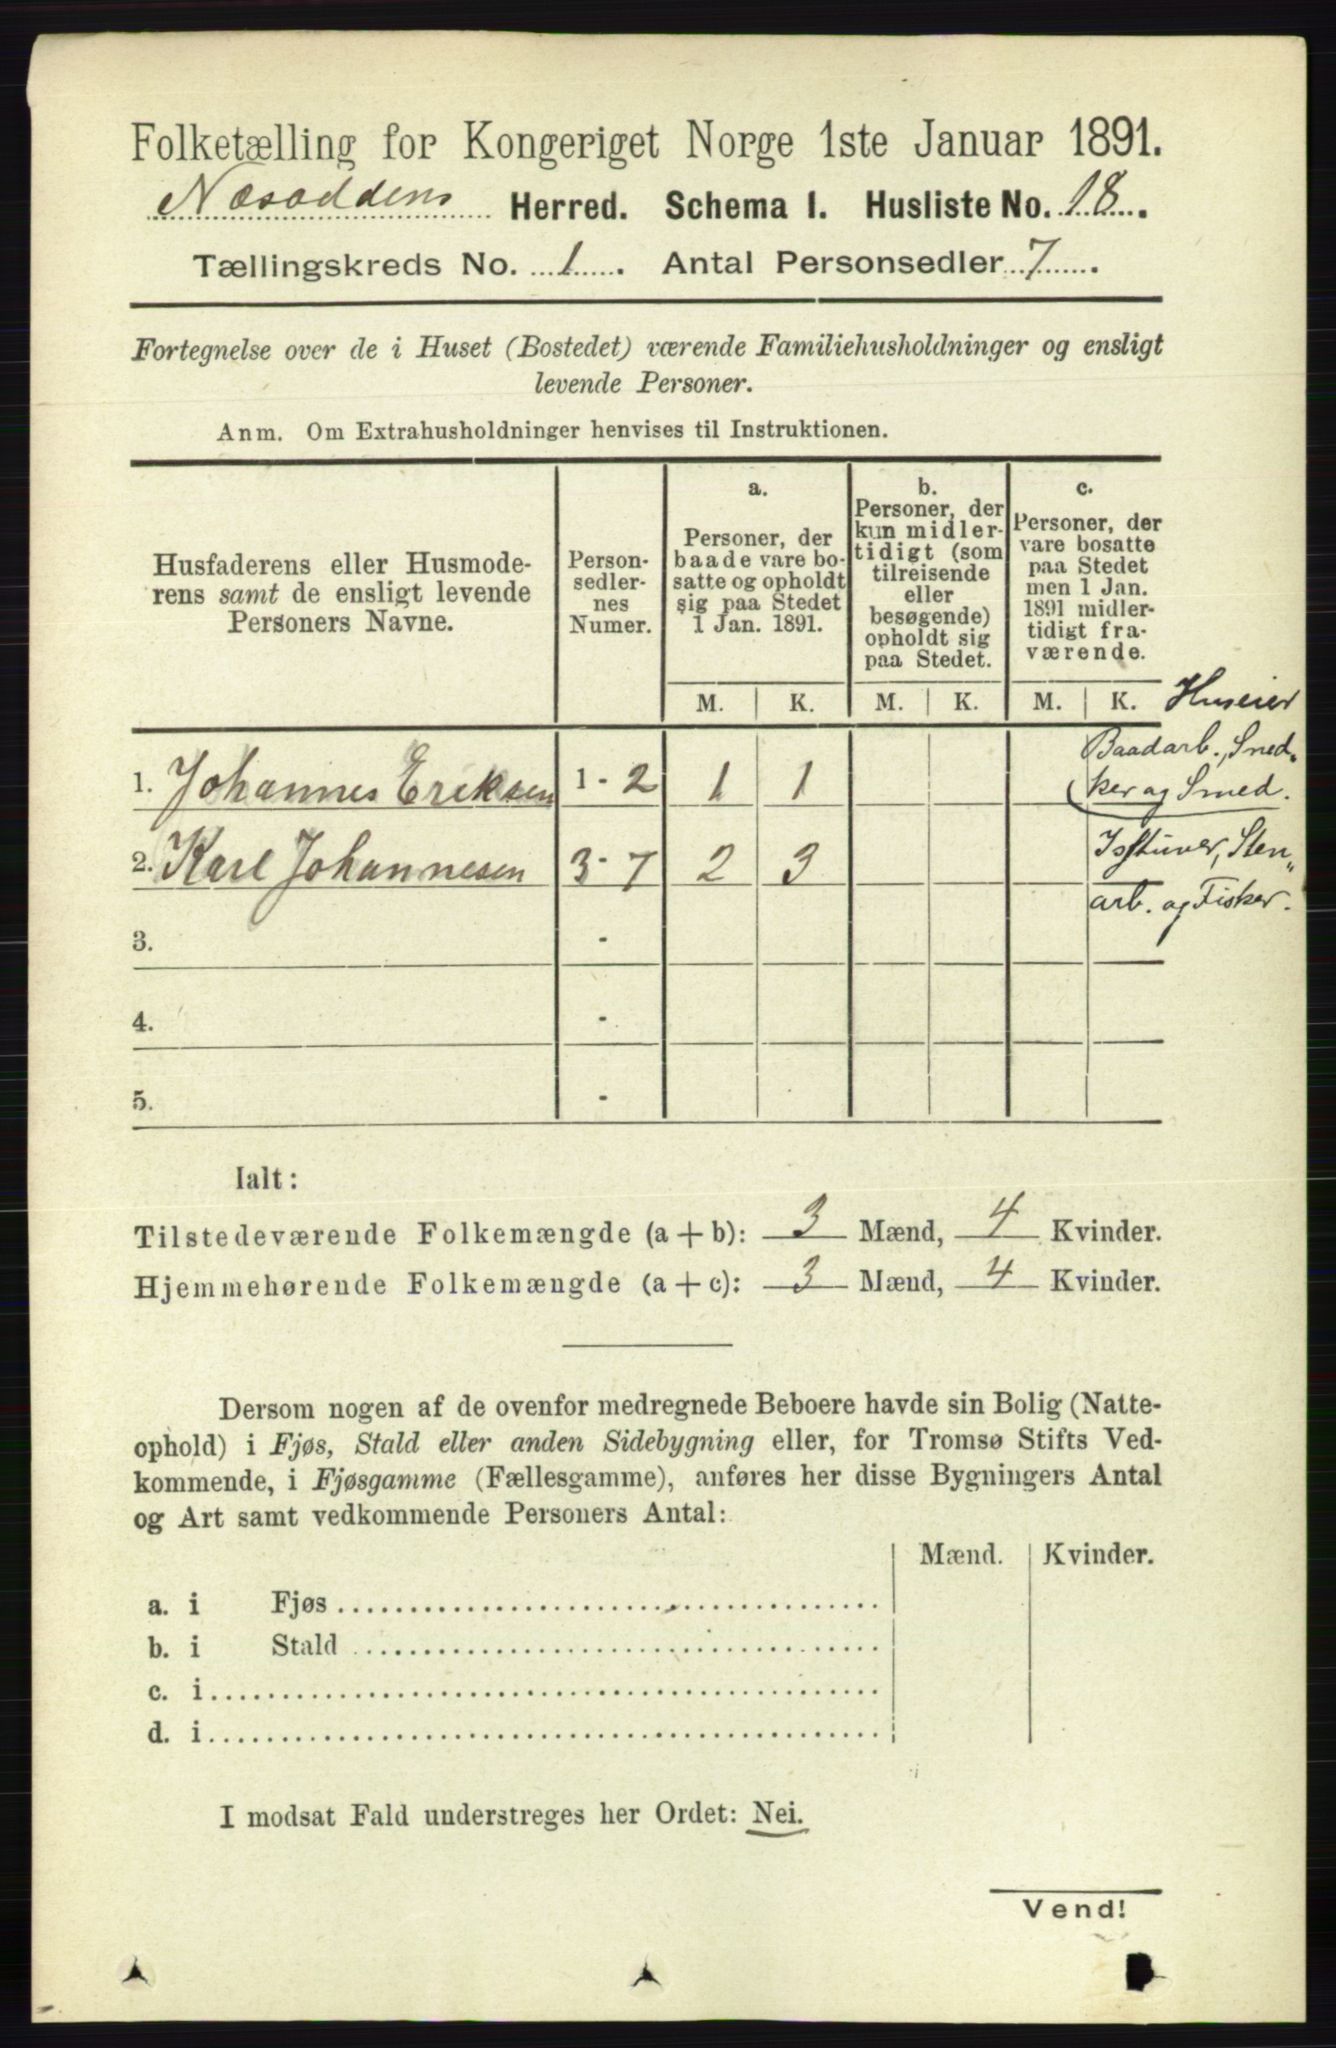 Folketælling for Kongeriget Norge 1ste Januar 1891.
Næsoddens Herred. Schema I. Husliste No. 18.
Tællingskreds No. 1. Antal Personsedler 7.
Fortegnelse over de i Huset (Bostedet) værende Familiehusholdninger og ensligt
levende Personer.
Anm. Om Extrahusholdninger henvises til Instruktionen.
Husfaderens eller Husmode-
rens samt de ensligt levende
Personers Navne.
Person-
sedler-
nes
Numer.
a.
Personer, der
baade vare bo-
satte og opholdt
sig paa Stedet
1 Jan. 1891.
b.
Personer, der
kun midler-
tidigt (som
tilreisende
eller
besøgende)
opholdt sig
paa Stedet.
c.
Personer, der
vare bosatte
paa Stedet
men 1 Jan.
1891 midler-
tidigt fra-
værende.
M. K. M. K. M. K. Huseier
1. Johannes Eriksen 1-2 1 1 Baadarb., Sned-
ker og Smed.
2. Karl Johannesen 3-7 2 3 Sten„
arb. og Fisker.
3. -
4. -
5. -
Ialt:
Tilstedeværende Folkemængde (a + b): 3 Mænd, 4 Kvinder.
Hjemmehørende Folkemængde (a + c): 3 Mænd, 4 Kvinder.
Dersom nogen af de ovenfor medregnede Beboere havde sin Bolig (Natte-
ophold) i Fjøs, Stald eller anden Sidebygning eller, for Tromsø Stifts Ved-
kommende, i Fjøsgamme (Fællesgamme), anføres her disse Bygningers Antal
og Art samt vedkommende Personers Antal:
Mænd. Kvinder.
a. i Fjøs
b. i Stald
c. i
d. i
I modsat Fald understreges her Ordet: Nei.
Vend!